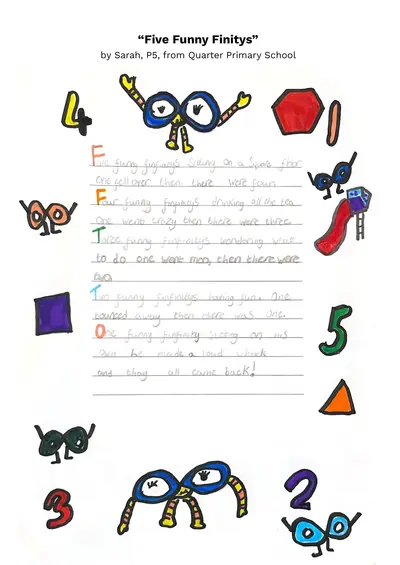 “Five Funny Finitys”
by Sarah, P5, from Quarter Primary School
4
1
Five funny finfinitys on a floor
one fell over then there were four.
Four funny drinking all the tea
One went crazy then there were three.
Three funny wondering what
to do one went moo, then there were
two
Two funny finfinitys having fun. One
bounced away then there was one.
5
One funny sitting on his
he made a loud
and they all came back!
3
2